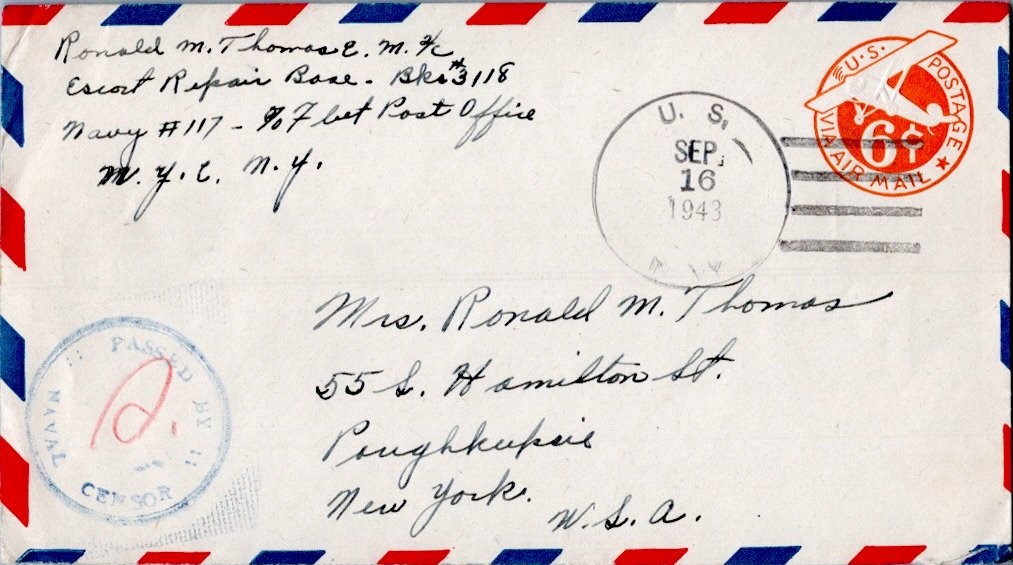 Ronald M. Thomas E. M. 2/c
Escort Repair Base - Bks # 3118
Navy #117 - c/o Fleet Post Office
N. Y. C. N. Y.
U. S. POSTAGE
6¢
VIA AIR MAIL
U. S.
SEP
16
1943
Mrs. Ronald M. Thomas
55 S. Hamilton St.
Poughkeepsie
New York.
U. S. A.
PASSED BY
NAVAL CENSOR